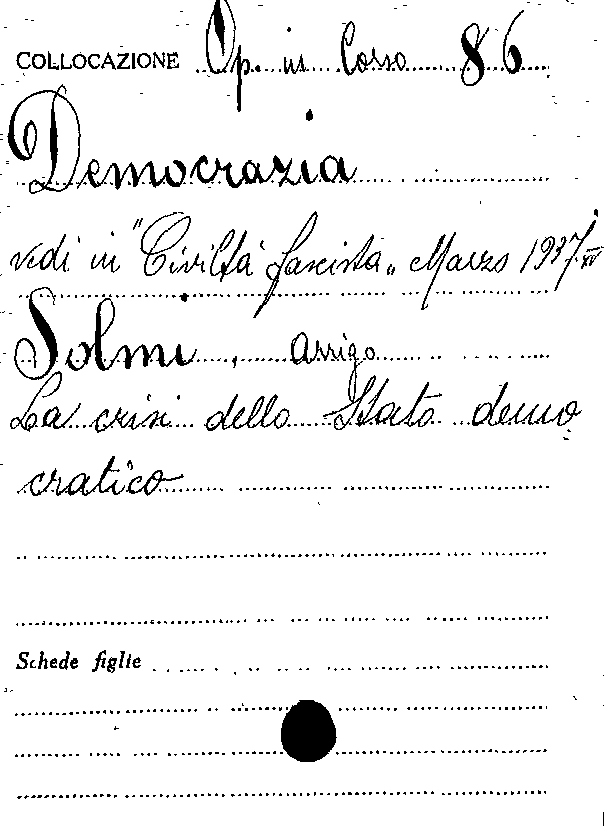 COLLOCAZIONE Op. in Corso 86
Democrazia
vedi in "Civiltà fascista" Marzo 1937 XV
Solmi, Arrigo
La crisi dello Stato demo
cratico
Schede figlie